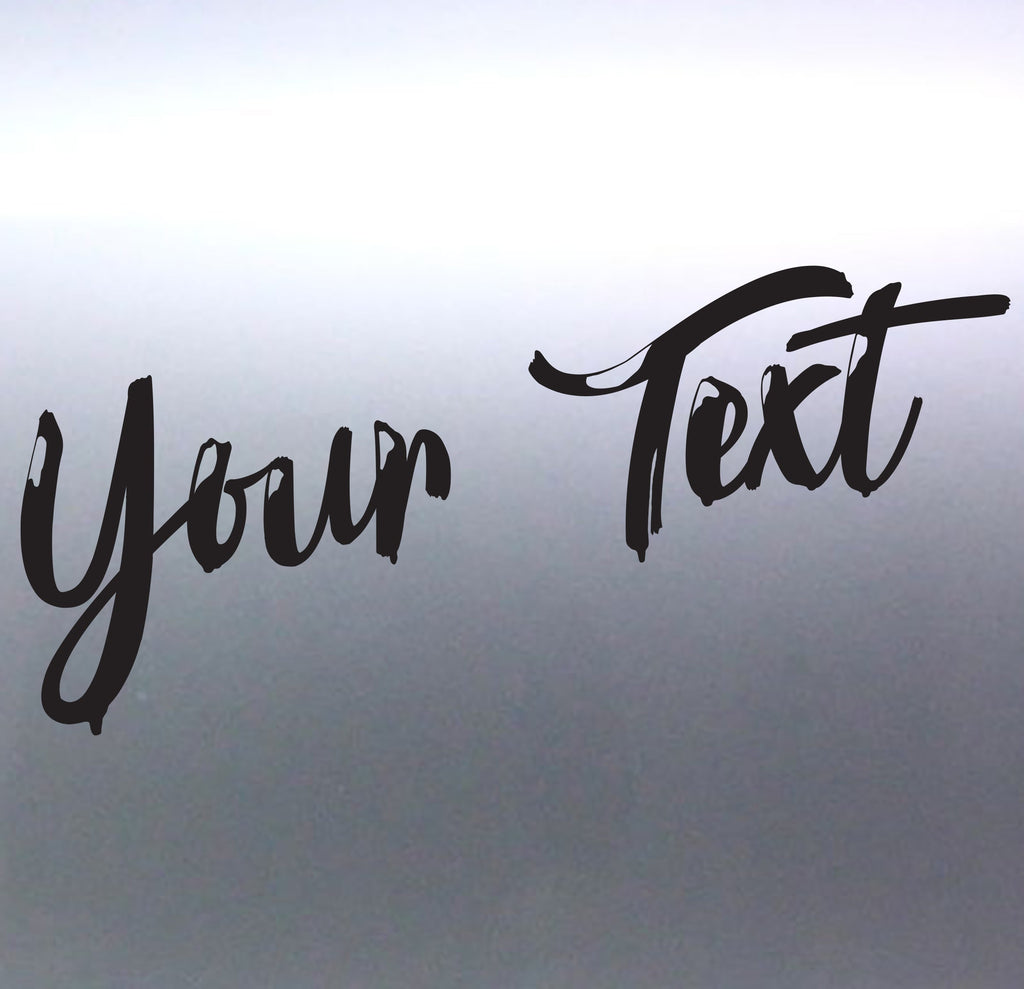 Your Text